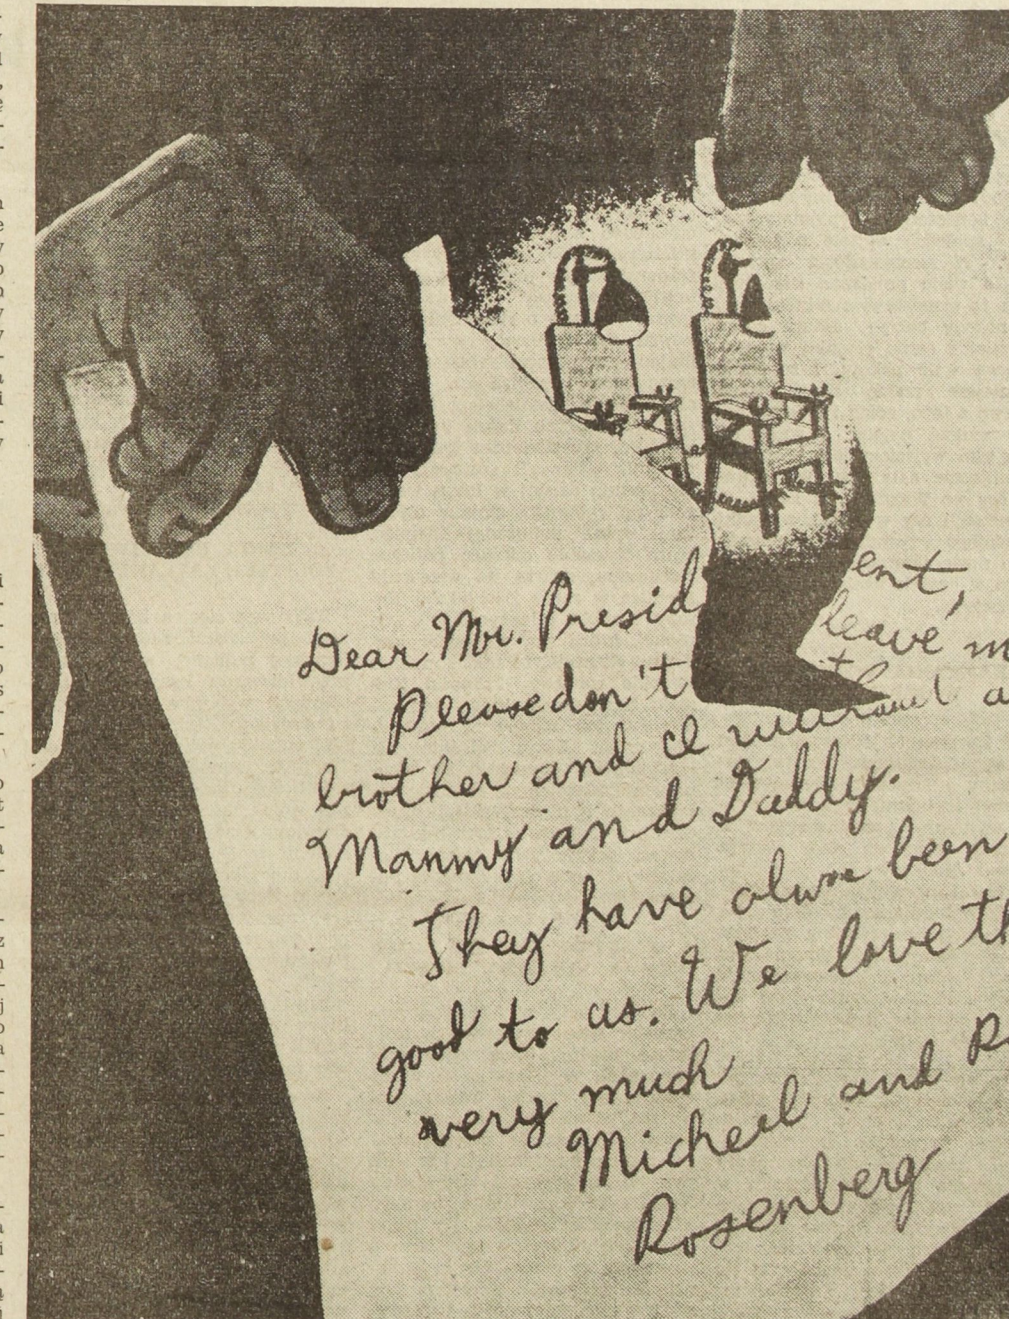 Dear Mr. Presid ent,
Please don't leave m
brother and I without a
Mammy and Daddy.
They have always been
good to us. We love th
very much
Micheal and R
Rosenberg